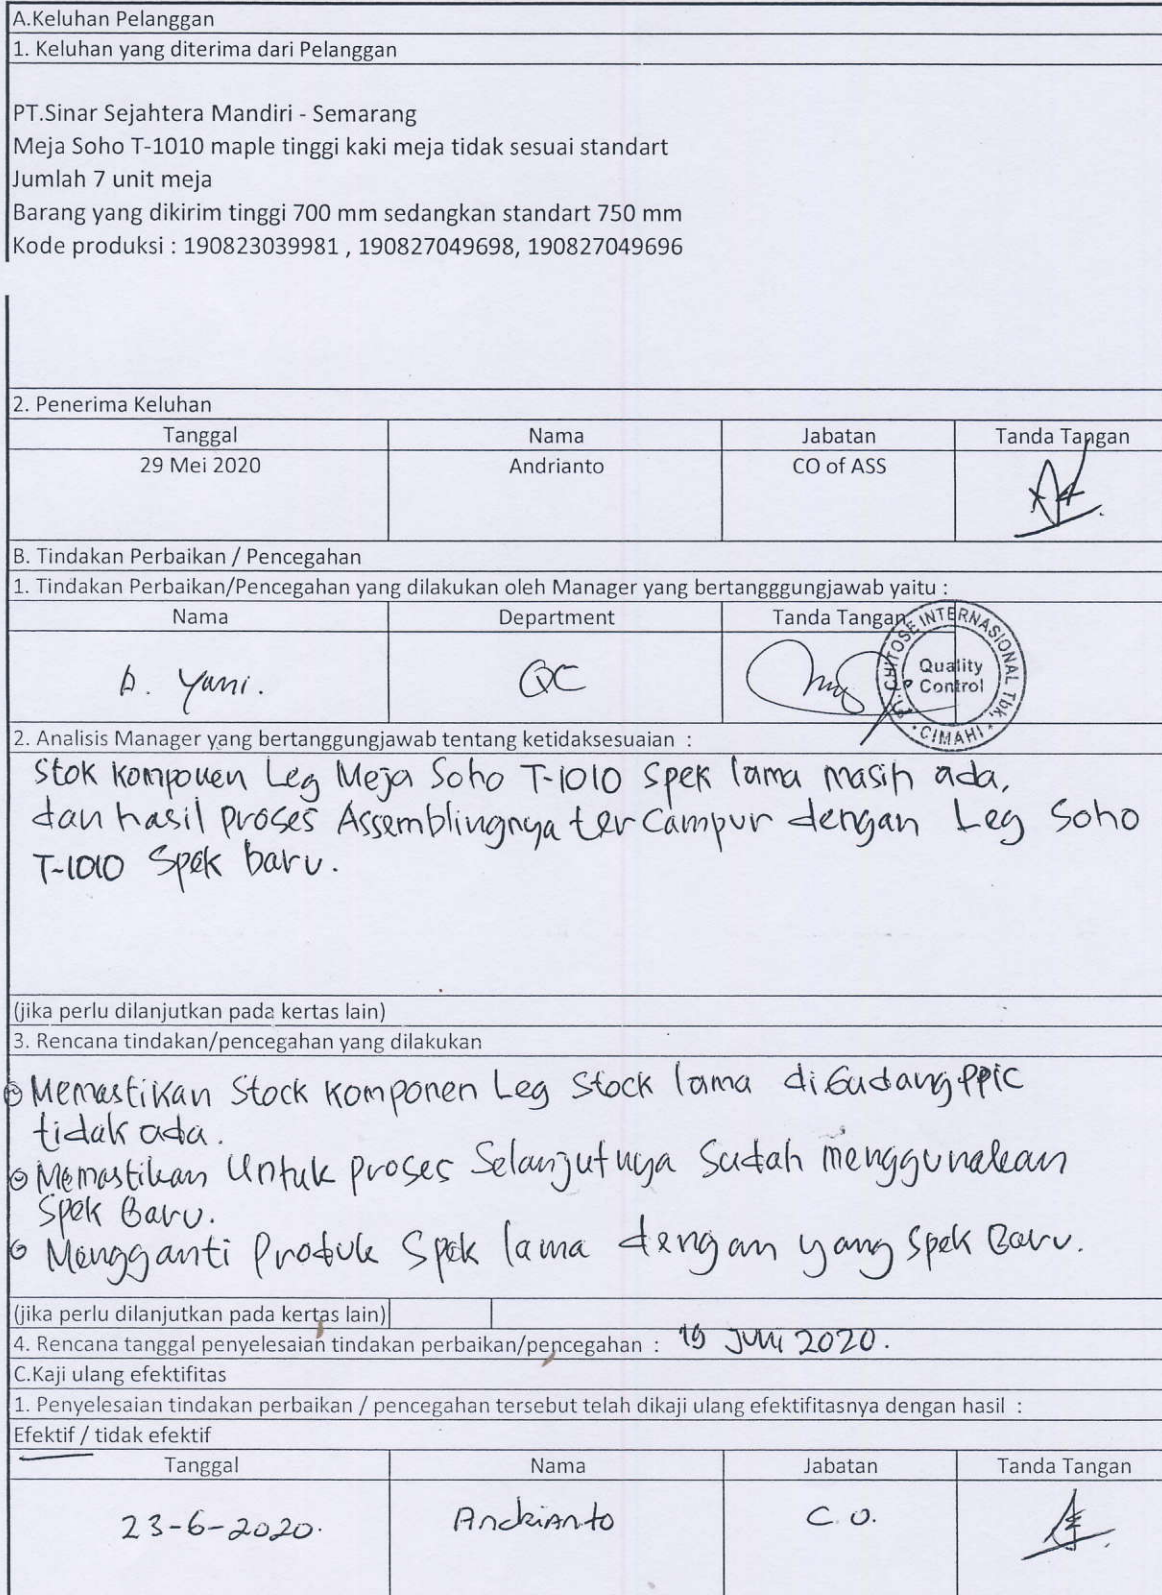 A.Keluhan Pelanggan
1. Keluhan yang diterima dari Pelanggan
PT.Sinar Sejahtera Mandiri - Semarang
Meja Soho T-1010 maple tinggi kaki meja tidak sesuai standart
Jumlah 7 unit meja
Barang yang dikirim tinggi 700 mm sedangkan standart 750 mm
Kode produksi : 190823039981 , 190827049698, 190827049696
2. Penerima Keluhan
Tanggal Nama Jabatan Tanda Tangan
29 Mei 2020 Andrianto CO of ASS
B. Tindakan Perbaikan / Pencegahan
1. Tindakan Perbaikan/Pencegahan yang dilakukan oleh Manager yang bertangggungjawab yaitu :
Nama Department Tanda Tangan
D. Yani. QC
CHITOSE INTERNASIONAL Tbk.
Quality
Control
CIMAHI
2. Analisis Manager yang bertanggungjawab tentang ketidaksesuaian :
Stok komponen Leg Meja Soho T-1010 Spek lama masih ada,
dan hasil proses Assemblingnya tercampur dengan Leg Soho
T-1010 Spek baru.
(jika perlu dilanjutkan pada kertas lain)
3. Rencana tindakan/pencegahan yang dilakukan
Memastikan Stock Komponen Leg Stock lama di Gudang PPIC
tidak ada.
Memastikan Untuk proses Selanjutnya Sudah menggunakan
Spek Baru.
Mengganti Produk Spek lama dengan yang Spek Baru.
(jika perlu dilanjutkan pada kertas lain)
4. Rencana tanggal penyelesaian tindakan perbaikan/pencegahan : 19 Juni 2020.
C.Kaji ulang efektifitas
1. Penyelesaian tindakan perbaikan / pencegahan tersebut telah dikaji ulang efektifitasnya dengan hasil :
Efektif / tidak efektif
Tanggal Nama Jabatan Tanda Tangan
23-6-2020. Andrianto C.O.